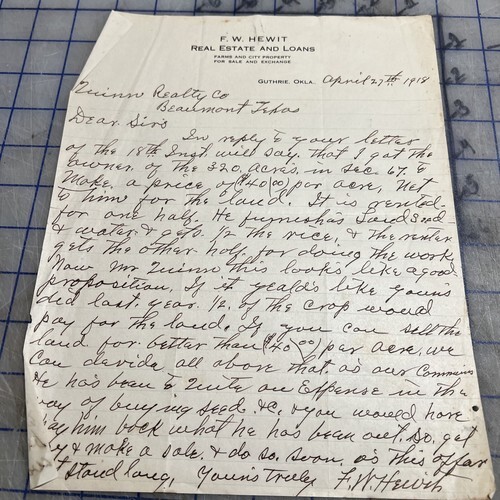 F. W. HEWIT
REAL ESTATE AND LOANS
FARMS AND CITY PROPERTY
FOR SALE AND EXCHANGE
GUTHRIE, OKLA. April 27th 1918
Quinn Realty Co
Beaumont Texas
Dear Sirs
In reply to your letter
of the 18th Inst. will say that I got the
owner of the 320 acres in Sec. 67. to
Make a price of $40.00 per acre, Net
to him for the land. It is rented
for one half. He furnishes land seed
& water & gets 1/2 the rice, & the renter
gets the other half for doing the work
Now Mr Quinn this looks like a good
proposition. If it yealds like yours
did last year 1/2 of the crop would
pay for the land. If you can sell the
land for better than $40.00 per acre, we
can devide all above that as our Commis
He has been to quite an Expense in the
way of buying seed &c. & you would have
pay him back what he has been out. So, get
& make a sale. & do so. soon as this offer
stand long, Yours truly F. W. Hewit